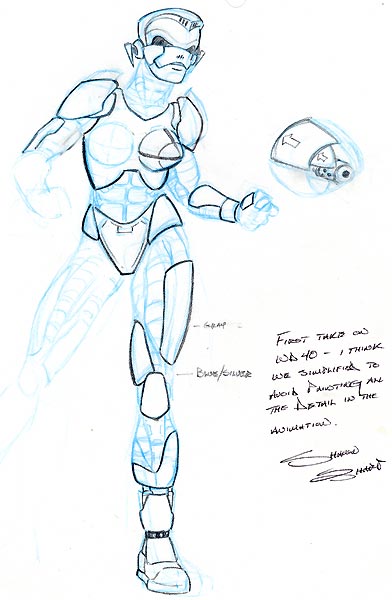 GRAY
BLUE/SILVER
FIRST TAKE ON
WD40 - I THINK
WE SIMPLIFIED TO
AVOID PAINTING ALL
THE DETAIL IN THE
ANIMATION.